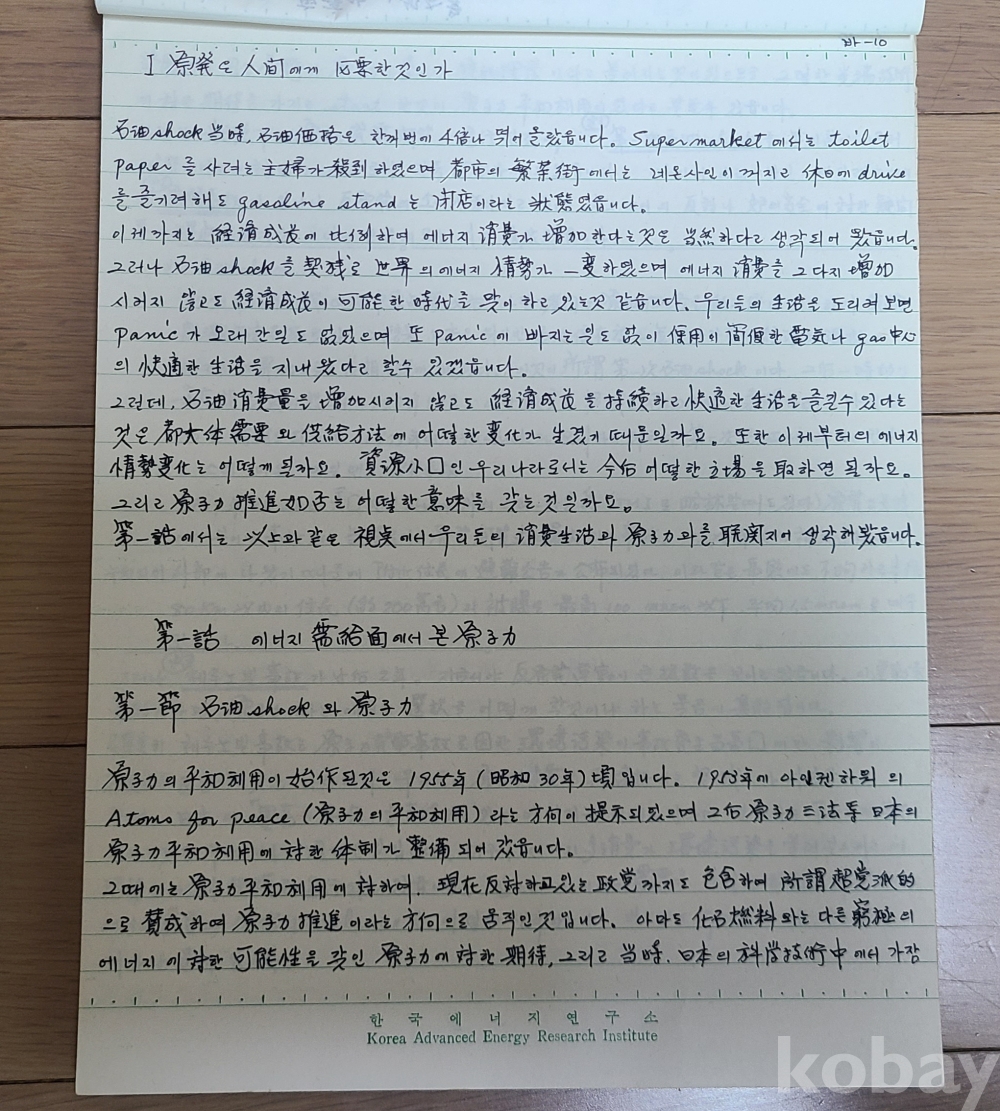 바-10
I 原発은 人間에게 必要한것인가
石油shock当時, 石油価格은 한꺼번에 4倍나 뛰어올랐읍니다. Supermarket에서는 toilet
paper를 사려는 主婦가 殺到하였으며 都市의 繁華街에서는 네온사인이 꺼지고 休日에 drive
를 즐기려해도 gasoline stand는 閉店이라는 状態였읍니다.
이제까지는 経済成長에 比例하여 에너지 消費가 増加한다는것은 当然하다고 생각되어 왔읍니다.
그러나 石油shock를 契機로 世界의 에너지 情勢가 一変하였으며 에너지 消費를 그다지 増加
시키지 않고도 経済成長이 可能한 時代를 맞이하고 있는것 같읍니다. 우리들의 生活을 도리켜보면
panic가 오래간일도 없었으며 또 panic에 빠지는일도 없이 使用이 簡便한 電気나 gas中心
의 快適한 生活을 지내왔다고 할수 있겠읍니다.
그런데, 石油消費量을 増加시키지 않고도 経済成長을 持続하고 快適한 生活을 즐길수있다는
것은 都大体 需要와 供給方法에 어떠한 変化가 生겼기 때문일까요. 또한 이제부터의 에너지
情勢変化는 어떻게 될까요. 資源小口인 우리나라로서는 今后 어떠한 立場을 取하면 될까요.
그리고 原子力推進如否는 어떠한 意味를 갖는것일까요.
第一話에서는 以上과 같은 視点에서 우리들의 消費生活과 原子力과를 聯関지어 생각해봤읍니다.
第一話 에너지 需給面에서 본 原子力
第一節 石油shock와 原子力
原子力의 平和利用이 始作된것은 1955年(昭和30年)頃입니다. 1953年에 아일젠하워의
Atoms for peace (原子力의 平和利用)라는 方向이 提示되었으며 그后 原子力三法等 日本의
原子力平和利用에 対한 体制가 整備되어 갔읍니다.
그때에는 原子力平和利用에 対하여, 現在反対하고있는 政党까지도 包含하여 所謂超党派的
으로 賛成하여 原子力推進이라는 方向으로 움직인것입니다. 아마도 化石燃料와는 다른 窮極의
에너지에対한 可能性을 갖인 原子力에対한 期待, 그리고 当時, 日本의 科学技術中에서 가장
한국에너지연구소
Korea Advanced Energy Research Institute
kobay